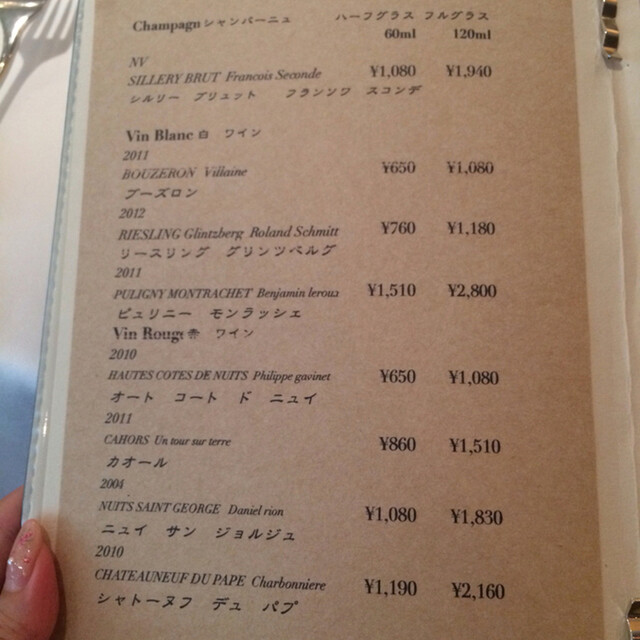 Champagn シャンパーニュ ハーフグラス フルグラス
60ml 120ml
NV
SILLERY BRUT Francois Seconde ¥1,080 ¥1,940
シルリー ブリュット フランソワ スコンデ
Vin Blanc 白 ワイン
2011
BOUZERON Villaine ¥650 ¥1,080
ブーズロン
2012
RIESLING Glintzberg Roland Schmitt ¥760 ¥1,180
リースリング グリンツベルグ
2011
PULIGNY MONTRACHET Benjamin leroux ¥1,510 ¥2,800
ピュリニー モンラッシェ
Vin Rouge 赤 ワイン
2010
HAUTES COTES DE NUITS Philippe gavinet ¥650 ¥1,080
オート コート ド ニュイ
2011
CAHORS Un tour sur terre ¥860 ¥1,510
カオール
2004
NUITS SAINT GEORGE Daniel rion ¥1,080 ¥1,830
ニュイ サン ジョルジュ
2010
CHATEAUNEUF DU PAPE Charbonniere ¥1,190 ¥2,160
シャトーヌフ デュ パプ